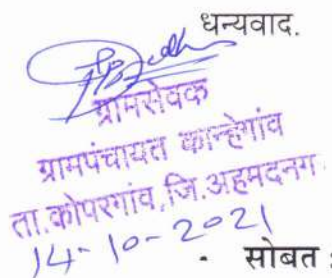 धन्यवाद.
ग्रामसेवक
ग्रामपंचायत कान्हेगांव
ता.कोपरगांव,जि.अहमदनग
14-10-2021
- सोबत :